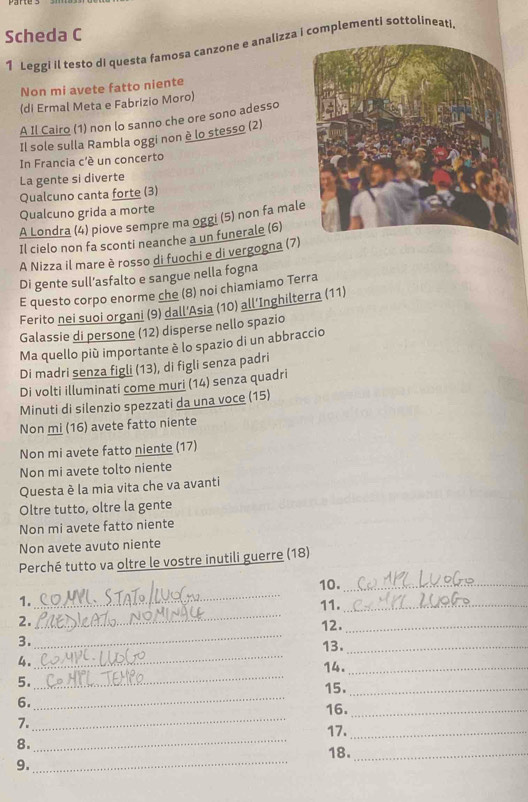 Parte 3
Scheda C
1 Leggi il testo di questa famosa canzone e analizza i complementi sottolineati.
Non mi avete fatto niente
(di Ermal Meta e Fabrizio Moro)
A Il Cairo (1) non lo sanno che ore sono adesso
Il sole sulla Rambla oggi non è lo stesso (2)
In Francia c'è un concerto
La gente si diverte
Qualcuno canta forte (3)
Qualcuno grida a morte
A Londra (4) piove sempre ma oggi (5) non fa male
Il cielo non fa sconti neanche a un funerale (6)
A Nizza il mare è rosso di fuochi e di vergogna (7)
Di gente sull'asfalto e sangue nella fogna
E questo corpo enorme che (8) noi chiamiamo Terra
Ferito nei suoi organi (9) dall'Asia (10) all'Inghilterra (11)
Galassie di persone (12) disperse nello spazio
Ma quello più importante è lo spazio di un abbraccio
Di madri senza figli (13), di figli senza padri
Di volti illuminati come muri (14) senza quadri
Minuti di silenzio spezzati da una voce (15)
Non mi (16) avete fatto niente
Non mi avete fatto niente (17)
Non mi avete tolto niente
Questa è la mia vita che va avanti
Oltre tutto, oltre la gente
Non mi avete fatto niente
Non avete avuto niente
Perché tutto va oltre le vostre inutili guerre (18)
1. COMPL. STATO/LUOGO
2. PREDICATO NOMINALE
3.
4. COMPL. LUOGO
5. COMPL TEMPO
6.
7.
8.
9.
10. COMPL LUOGO
11. COMPL LUOGO
12.
13.
14.
15.
16.
17.
18.